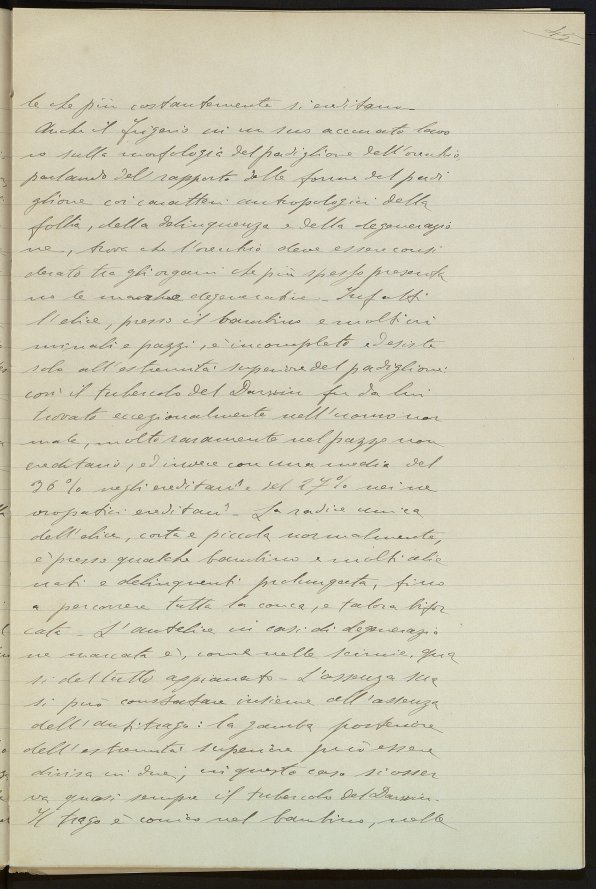 45
le che più costantemente si ereditano.
Anche il Frigerio in un suo accurato lavo
ro sulla morfologia del padiglione dell'orecchio,
parlando del rapporto delle forme del padi
glione coi caratteri antropologici della
follia, della delinquenza e della degenerazio
ne, trova che l'orecchio deve essere consi
derato tra gli organi che più spesso presenta
no le marche degenerative. Infatti
l'elice, presso il bambino e molti cri
minali e pazzi, è incompleto ed esiste
solo all'estremità superiore del padiglione:
così il tubercolo del Darwin fu da lui
trovato eccezionalmente nell'uomo nor
male, molto raramente nel pazzo non
ereditario, ed invece con una media del
36% negli ereditari e del 27% nei ne
vropatici ereditari. La radice unica
dell'elice, corta e piccola normalmente,
è presso qualche bambino e molti alie
nati e delinquenti prolungata, fino
a percorrere tutta la conca, e talora bifor
cata. L'antelice in casi di degenerazio
ne marcata è, come nelle scimie, qua
si del tutto appianato. L'assenza sua
si può constatare insieme all'assenza
dell'antitrago: la gamba posteriore
dell'estremità superiore può essere
divisa in due; in questo caso si osser
va quasi sempre il tubercolo del Darwin.
Il trago è conico nel bambino, nelle